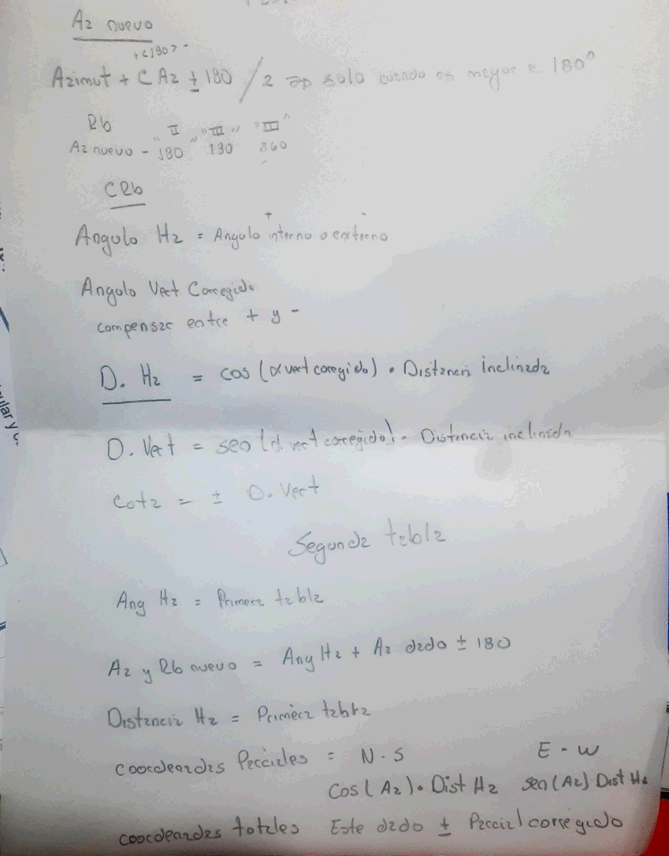 Az nuevo
+<180> -
Azimut + C Az ± 180 / 2 => solo cuando es mayor a 180°
Rb "II" "III" "III"
Az nuevo - 180 180 360
CRb
+ -
Angulo Hz = Angulo interno o externo
Angulo Vert Corregido
compensar entre + y -
D. Hz = cos (α vert corregido) • Distancia inclinada
D. Vert = sen (α vert corregido) • Distancia inclinada
Cota = ± D. Vert
Segunda tabla
Ang Hz = Primera tabla
Az y Rb nuevo = Ang Hz + Az dado ± 180
Distancia Hz = Primera tabla
coordenadas Parciales = N - S E - W
Cos (Az) • Dist Hz sen (Az) Dist Hz
coordenadas totales Este dado ± Parcial corregido
ular y